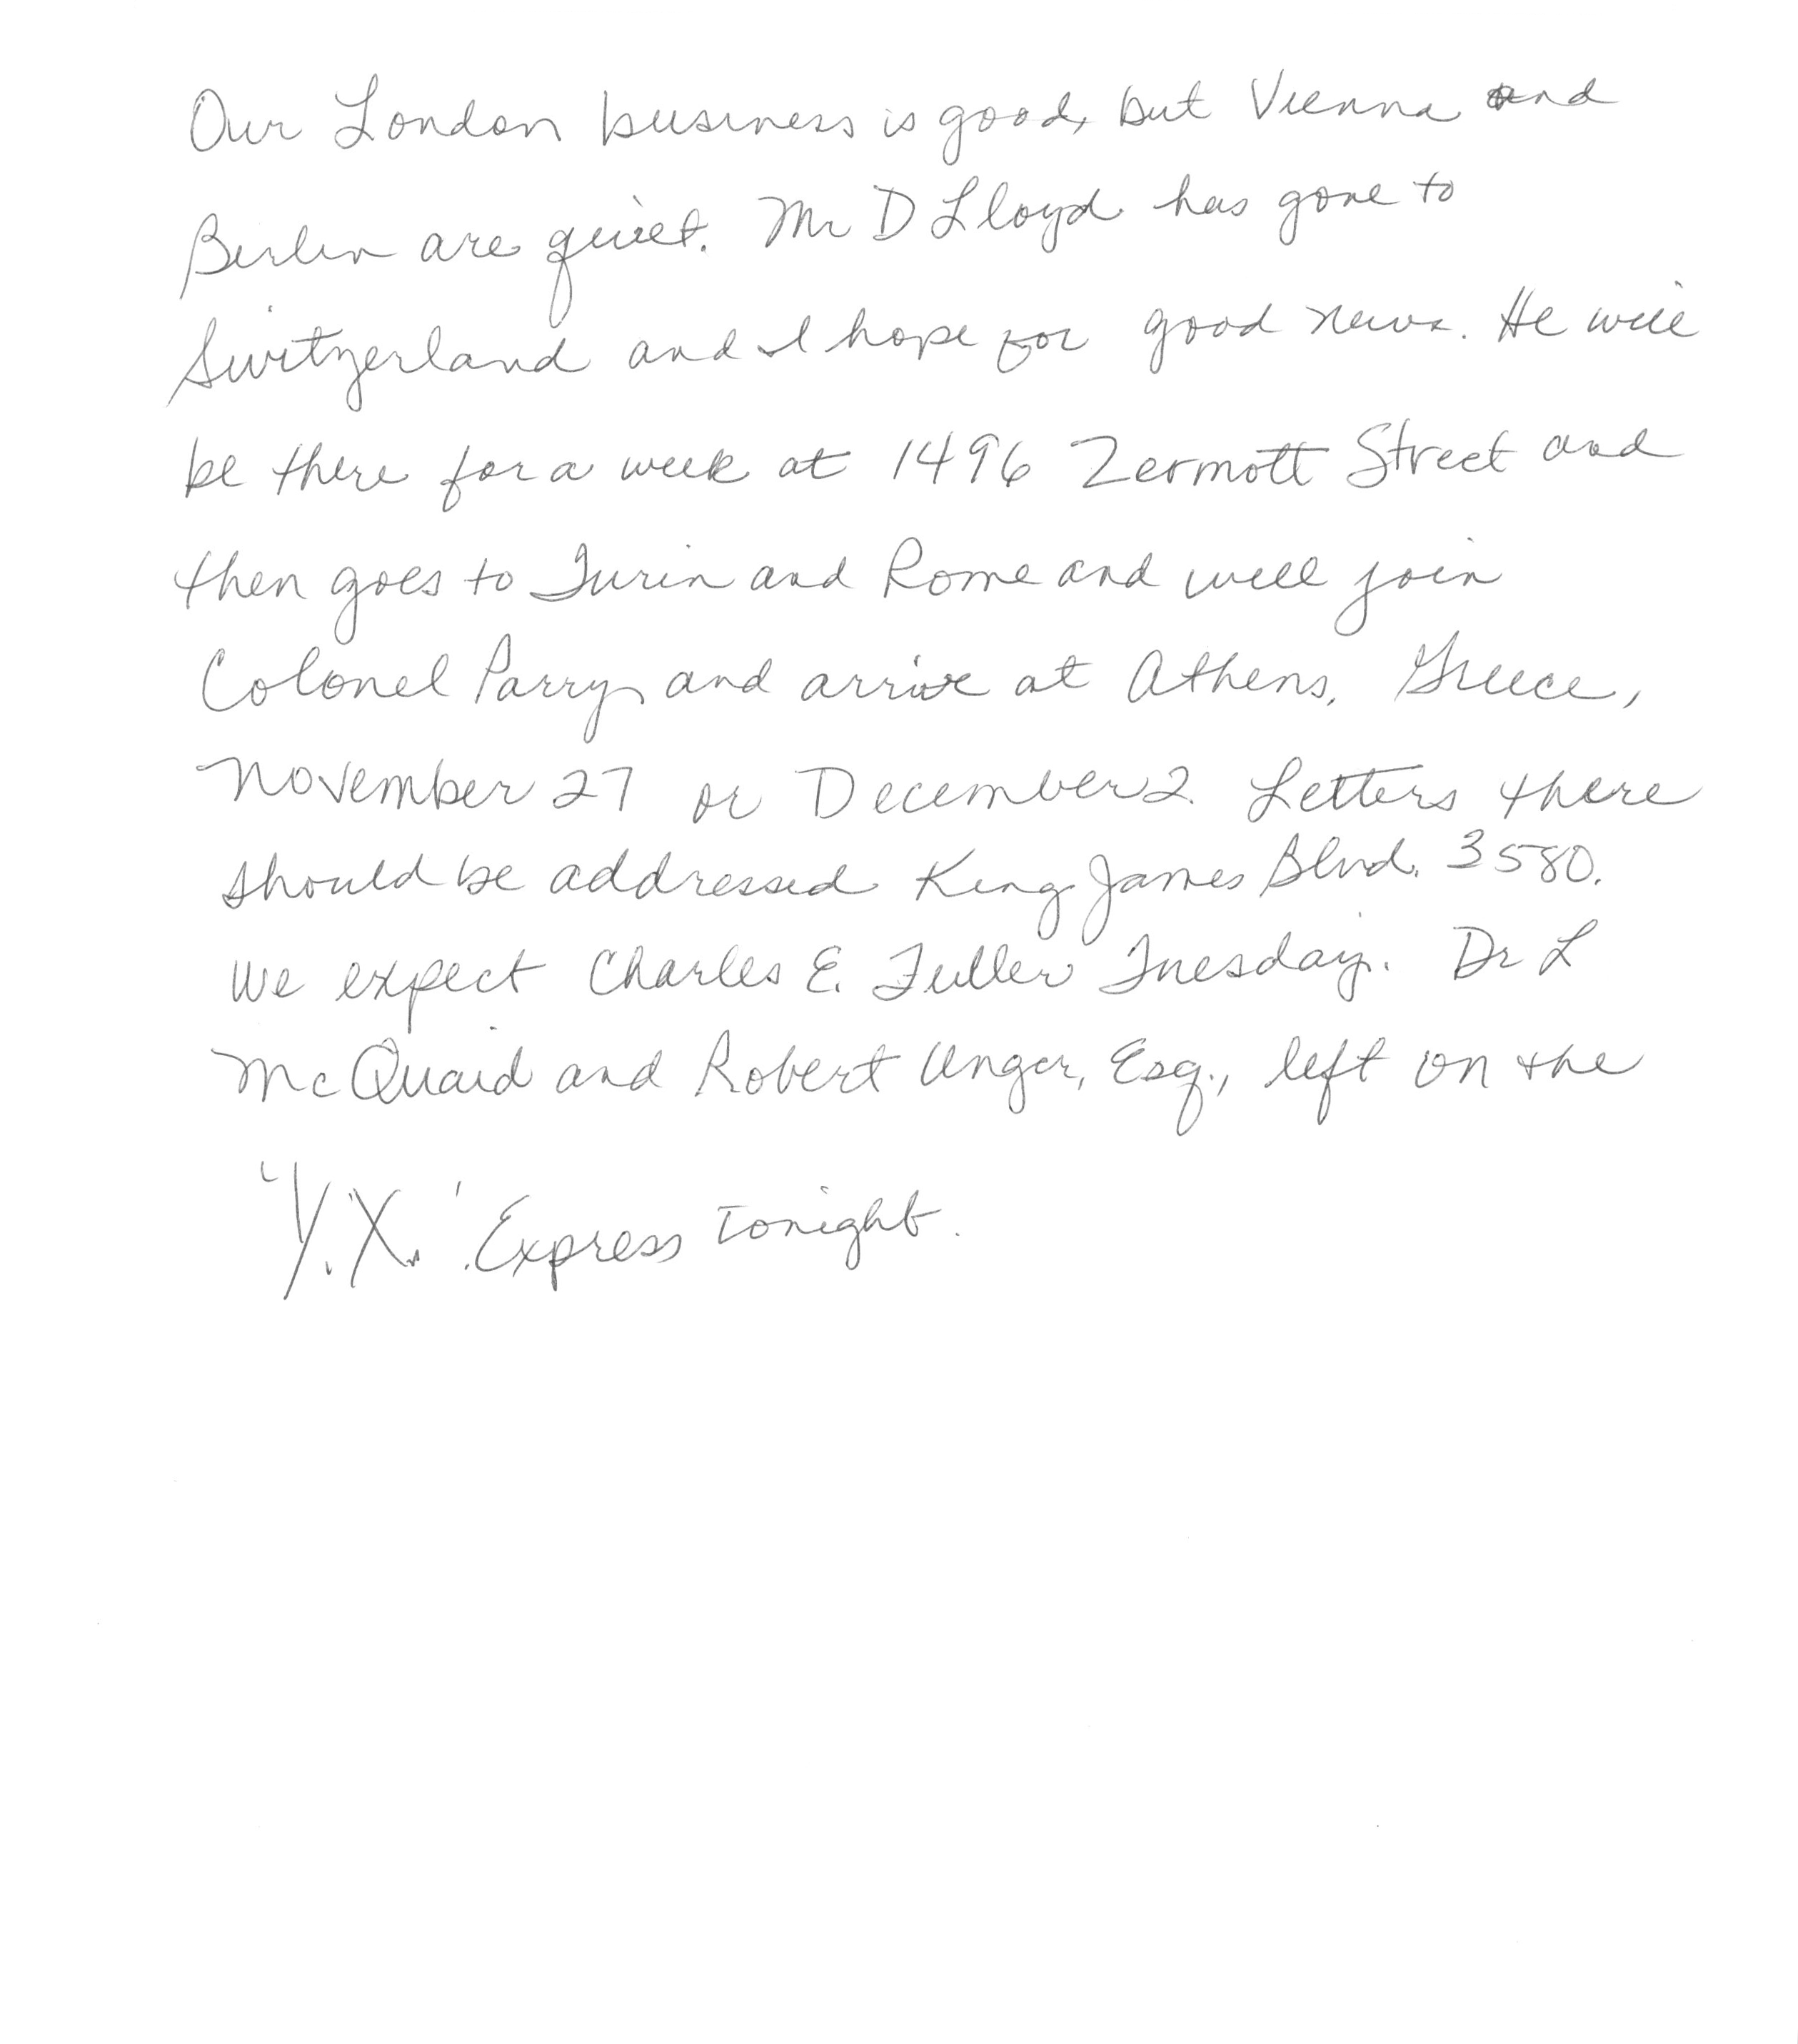 Our London business is good, but Vienna and
Berlin are quiet. Mr D Lloyd has gone to
Switzerland and I hope for good news. He will
be there for a week at 1496 Zermott Street and
then goes to Turin and Rome and will join
Colonel Parry and arrive at Athens, Greece,
November 27 or December 2. Letters there
should be addressed King James Blvd. 3580.
We expect Charles E. Fuller Tuesday. Dr L
McQuaid and Robert Unger, Esq., left on the
'Y.X.' Express tonight.